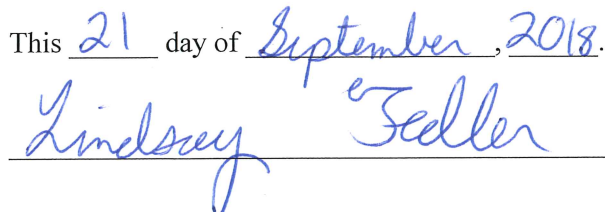 This 21 day of September, 2018.
Lindsay